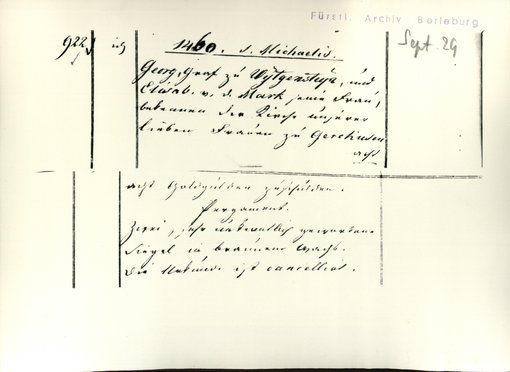 Fürstl. Archiv Berleburg
922
1460. s. Michaelis.
Sept. 29
Georg, Graf zu Wytgensteyn, und
Elisab. v. d. Mark seine Frau,
bekennen der Kirche unserer
lieben Frauen zu
acht
acht Goldgulden zu schulden.
Pergament.
Zwei, sehr unkenntlich gewordene
Siegel in braunem Wachs.
Die Urkunde ist cancellirt.